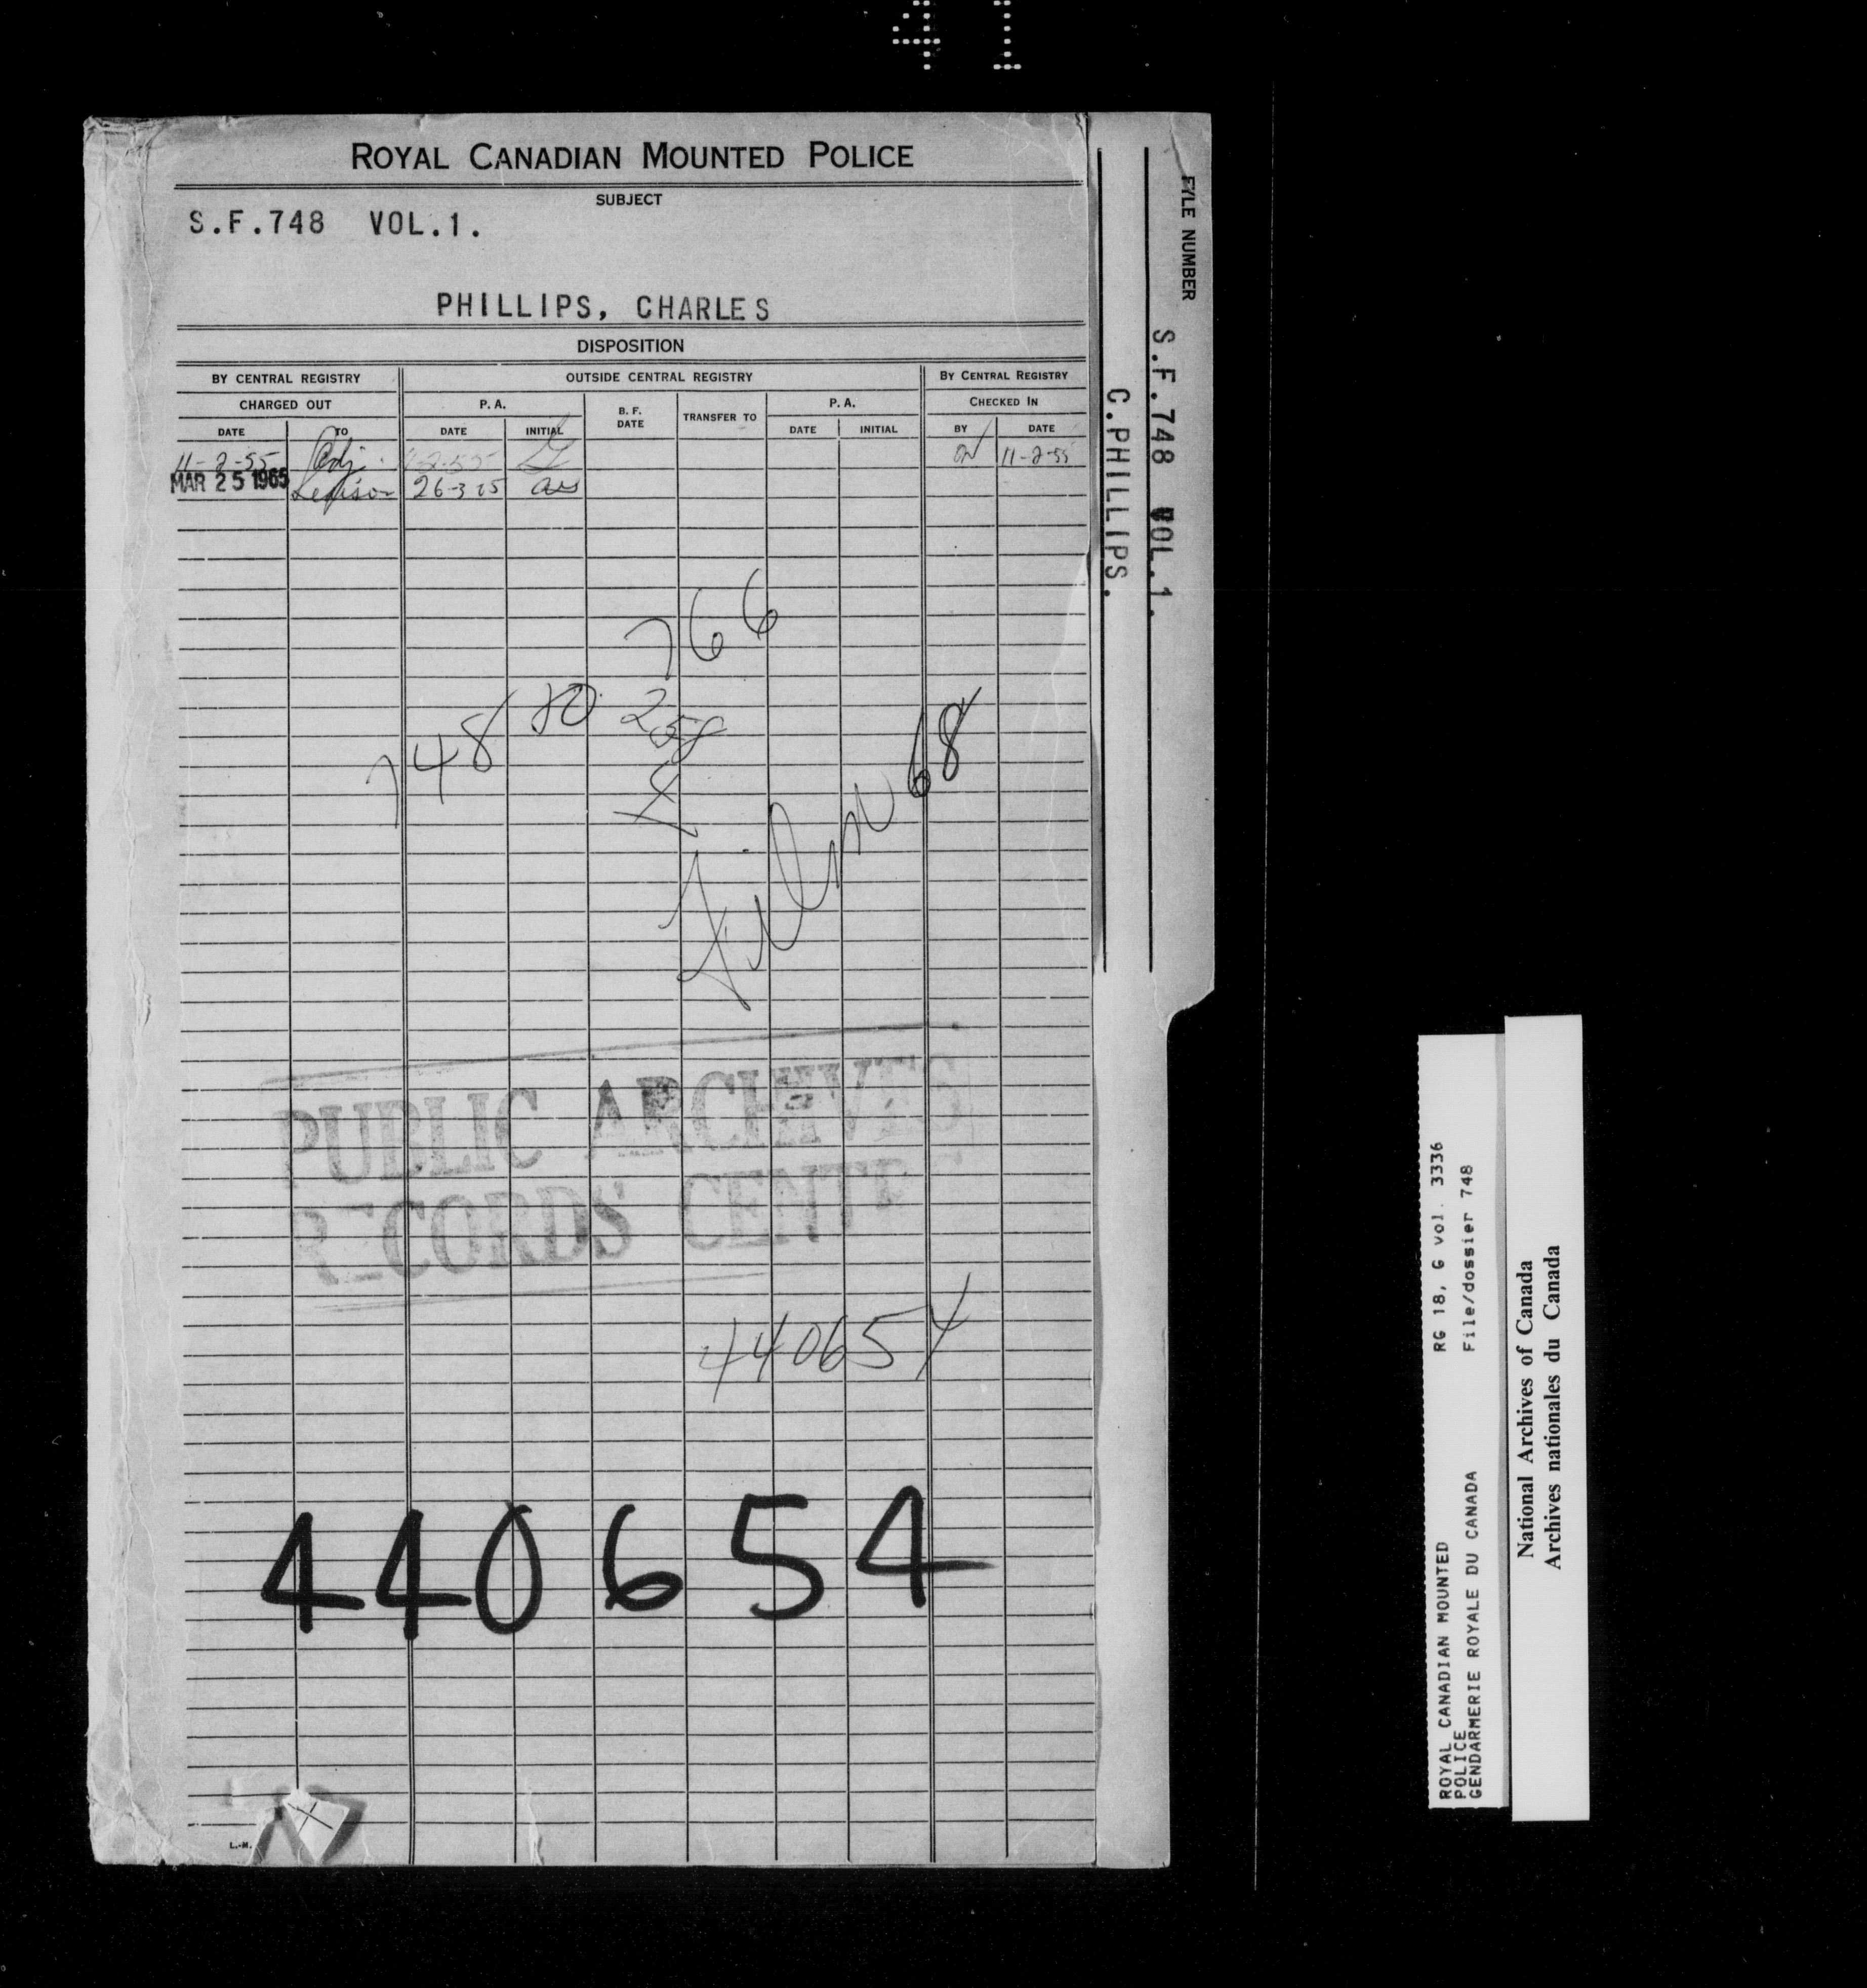 41
ROYAL CANADIAN MOUNTED POLICE
SUBJECT
S.F.748 VOL.1.
PHILLIPS, CHARLES
DISPOSITION
BY CENTRAL REGISTRY OUTSIDE CENTRAL REGISTRY BY CENTRAL REGISTRY
CHARGED OUT P. A. B. F. DATE TRANSFER TO P. A. CHECKED IN
DATE TO DATE INITIAL DATE INITIAL BY DATE
11-2-55 Adj. 11-2-55
MAR 25 1965 26-3-65
766
748 80 258
Film 68
PUBLIC ARCHIVES
RECORDS CENTRE
440654
440654
L.-M.
FYLE NUMBER
S.F.748 VOL.1.
C.PHILLIPS.
ROYAL CANADIAN MOUNTED RG 18, G vol. 3336
POLICE
GENDARMERIE ROYALE DU CANADA File/dossier 748
National Archives of Canada
Archives nationales du Canada